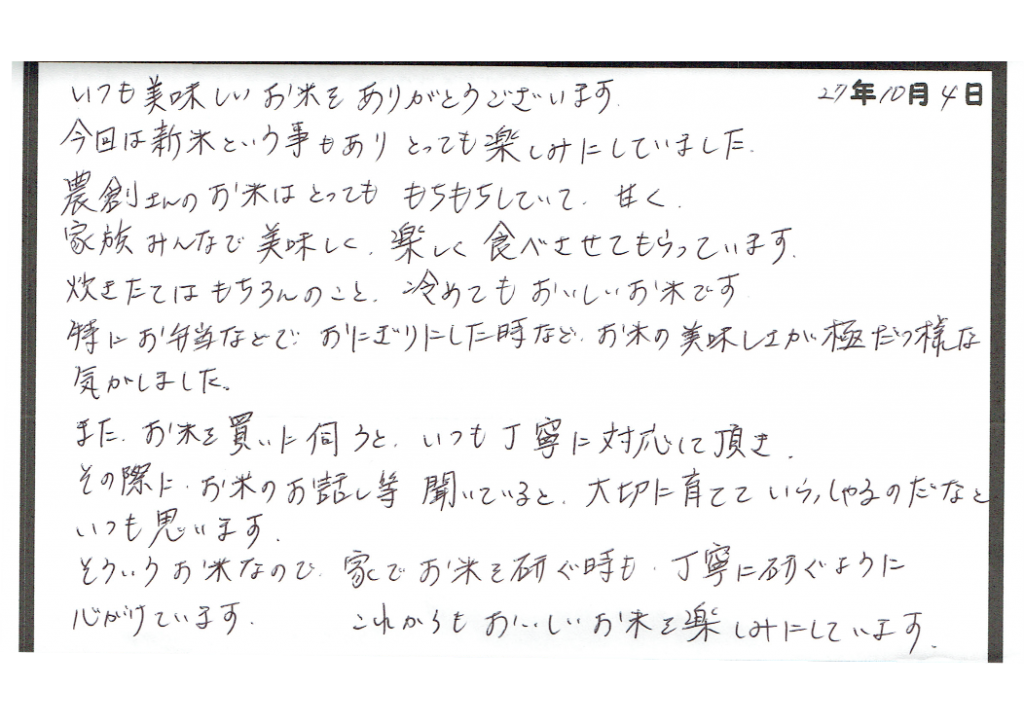 27年10月4日
いつも美味しいお米をありがとうございます.
今回は新米という事もあり とっても楽しみにしていました.
農創さんのお米はとっても もちもちしていて、甘く、
家族みんなで美味しく、楽しく食べさせてもらっています.
炊きたてはもちろんのこと、冷めてもおいしいお米です
特にお弁当などで、おにぎりにした時など、お米の美味しさが極だつ様な
気がしました。
また、お米を買いに伺うと、いつも丁寧に対応して頂き、
その際に、お米のお話し等 聞いていると、大切に育てていらっしゃるのだなと
いつも思います.
そういうお米なので、家でお米を研ぐ時も、丁寧に研ぐように
心がけています. これからもおいしいお米を楽しみにしています.